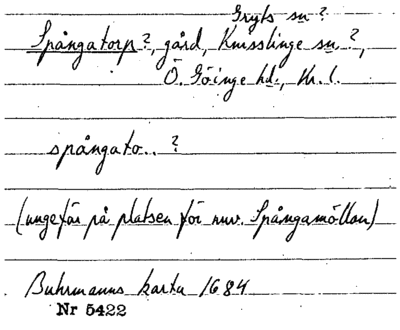 Gryts sn ?
Spångatorp ?, gård, Knisslinge sn ?,
Ö. Göinge hd., Kr. l.
spångato.. ?
(ungefär på platsen för nuv. Spångamöllan)
Buhrmanns karta 1684
Nr 5422